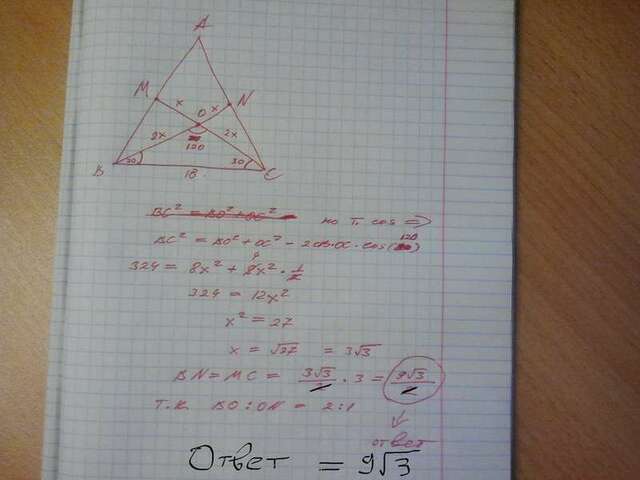 A
M
N
x
x
O
2x
2x
120
30
30
B
18
C
BC² = BO² + OC²
по т. cos ⇒
BC² = BO² + OC² − 2OB·OC·cos(120)
324 = 8x² + 8x² · 1/2
4
324 = 12x²
x² = 27
x = √27 = 3√3
BN = MC = 3√3/2 · 3 = 9√3/2
т.к. BO : ON = 2:1
ответ
Ответ = 9√3